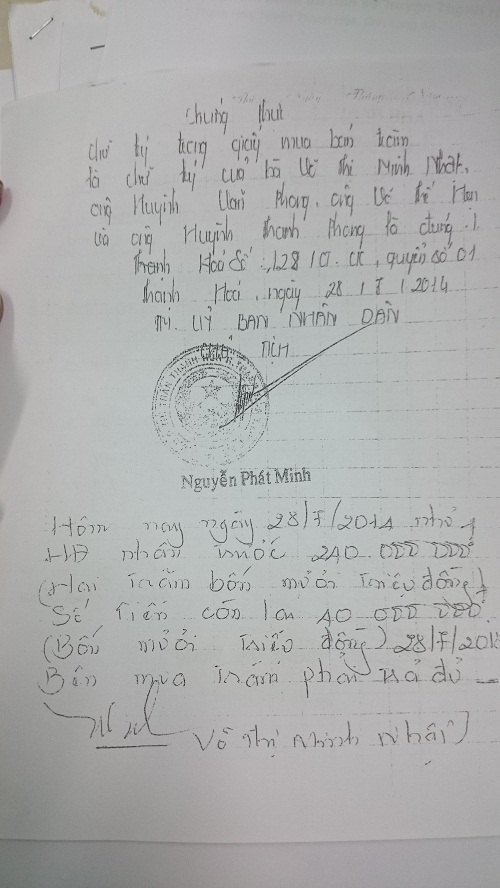 Chứng thực
chữ ký trong giấy mua bán trên
là chữ ký của bà Võ Thị Minh Nhật,
ông Huỳnh Văn Phong, ông Võ Thế
và ông Huỳnh Thanh Phong là đúng./.
Thanh Hoá Số: 128 / .CK, quyển số 01
Thanh Hoá, ngày 28 / 7 / 2014
TM. UỶ BAN NHÂN DÂN
TỊCH
Nguyễn Phát Minh
Hôm nay ngày 28/7/2014
nhận trước 240 000 000đ
(Hai trăm bốn mươi triệu đồng)
Số tiền còn lại 40 000 000đ
(Bốn mươi triệu đồng) 28/7/201
Bên mua trần phải trả đủ
Võ Thị Minh Nhật